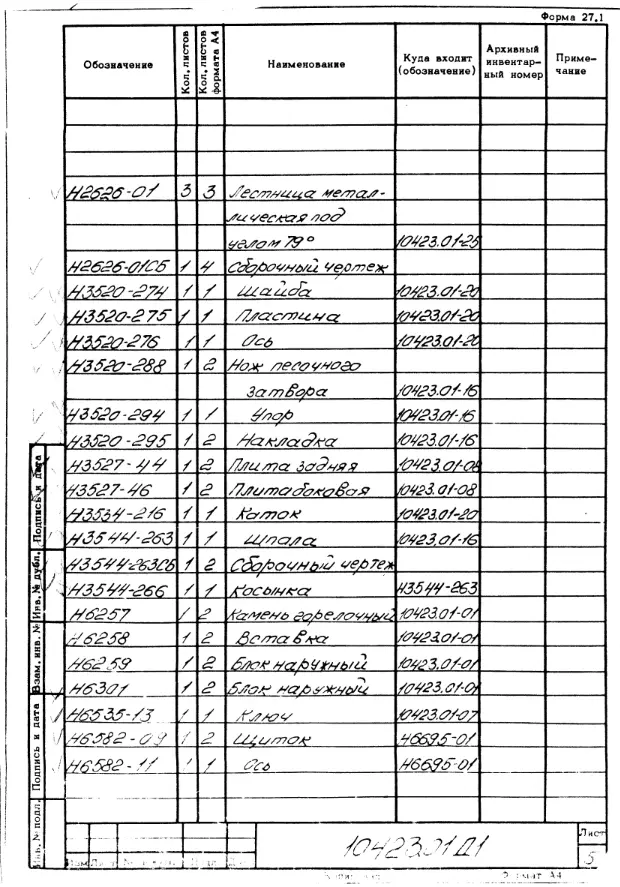 Форма 27.1
Обозначение Кол. листов Кол. листов формата А4 Наименование Куда входит (обозначение) Архивный инвентарный номер Примечание
Н2626-01 3 3 Лестница метал-
лическая под
углом 79° 10423.01-25
Н2626-01СБ 1 4 Сборочный чертеж
Н3520-274 1 1 Шайба 10423.01-20
Н3520-275 1 1 Пластина 10423.01-20
Н3520-276 1 1 Ось 10423.01-20
Н3520-288 1 2 Нож песочного
затвора 10423.01-16
Н3520-294 1 1 Упор 10423.01-16
Н3520-295 1 2 Накладка 10423.01-16
Н3527-44 1 2 Плита задняя 10423.01-08
Н3527-46 1 2 Плита боковая 10423.01-08
Н3534-216 1 1 Каток 10423.01-20
Н3544-263 1 1 Шпала 10423.01-16
Н3544-263СБ 1 2 Сборочный чертеж
Н3544-266 1 1 Косынка Н3544-263
Н6257 1 2 Камень горелочный 10423.01-01
Н6258 1 2 Вставка 10423.01-01
Н6259 1 2 Блок наружный 10423.01-01
Н6301 1 2 Блок наружный 10423.01-01
Н6535-13 1 1 Ключ 10423.01-07
Н6582-09 1 2 Щиток Н6695-01
Н6582-11 1 1 Ось Н6695-01
Подпись и дата
Инв. № дубл.
Взам. инв. №
Подпись и дата
Инв. № подл.
10423.01Д1
Лист
5
Формат А4